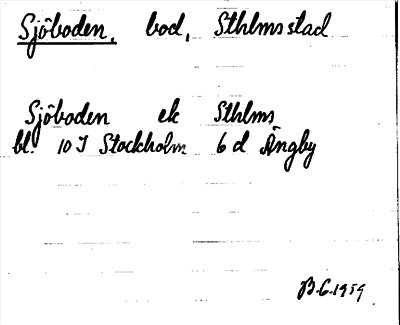 Sjöboden, bod, Sthlms stad
Sjöboden ek Sthlms
bl. 10 I Stockholm 6 d Ängby
B.G. 1959